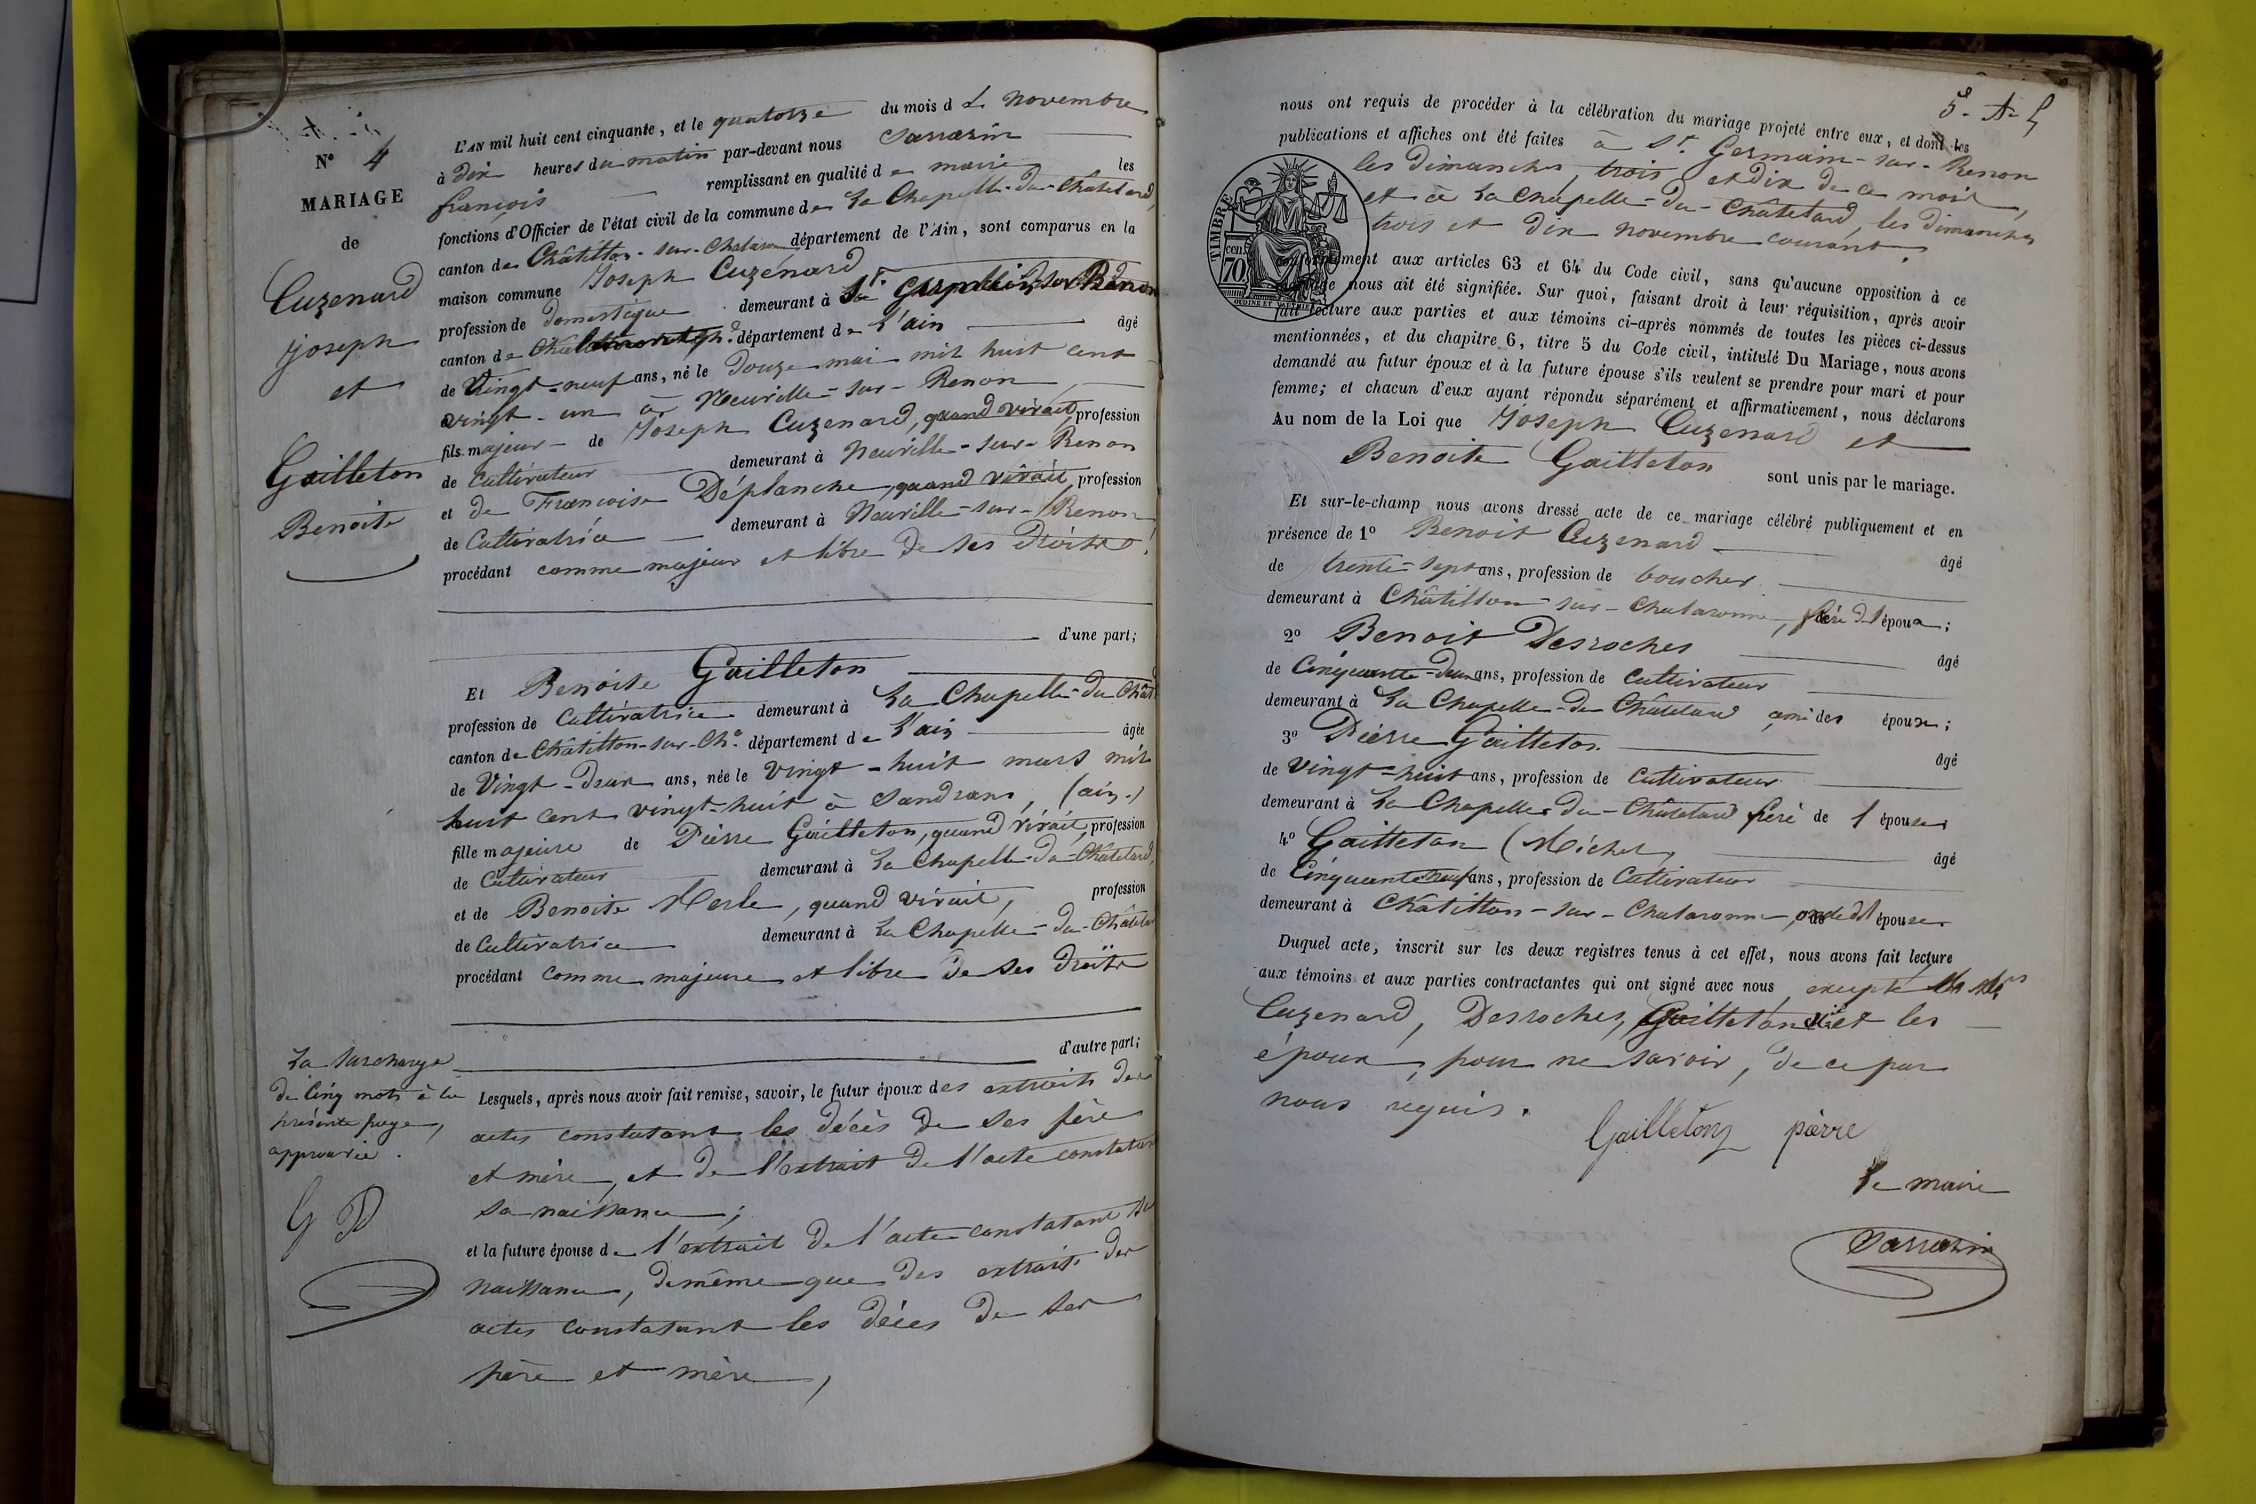 N° 4
MARIAGE
de
Cuzenard
joseph
et
Gailleton
Benoite
L'AN mil huit cent cinquante, et le quatorze du mois de novembre
à dix heures du matin par-devant nous Sarrazin
françois remplissant en qualité de maire les
fonctions d'Officier de l'état civil de la commune de La Chapelle-du-Châtelard,
canton de Châtillon-sur-Chalaronne département de l'Ain, sont comparus en la
maison commune Joseph Cuzenard
profession de domestique demeurant à St Germain sur Renon
canton de département de L'ain âgé
de Vingt-neuf ans, né le douze mai mil huit cent
vingt-un à Neuville-sur-Renon,
fils majeur de Joseph Cuzenard, quand vivait, profession
de Cultivateur demeurant à Neuville-sur-Renon
et de Francoise Déplanche, quand vivait, profession
de Cultivatrice demeurant à Neuville-sur-Renon
procédant comme majeur et libre de ses droits,
d'une part;
Et Benoite Gailleton
profession de Cultivatrice demeurant à La Chapelle-du-Chât
canton de Châtillon-sur-Ch.e département de L'ain âgée
de Vingt-deux ans, née le vingt-huit mars mil
huit cent vingt-huit à Sandrans, (ain.)
fille majeure de Pierre Gailleton, quand vivait, profession
de Cultivateur demeurant à La Chapelle-du-Châtelard,
et de Benoite Merle, quand vivait, profession
de Cultivatrice demeurant à La Chapelle-du-Châtelar
procédant comme majeure et libre de ses droits
d'autre part;
La surcharge
de Cinq mots à la
présente page,
approuvée.
G D
Lesquels, après nous avoir fait remise, savoir, le futur époux des extraits des
actes constatant les décès de ses père
et mère, et de l'extrait de l'acte constatant
sa naissance;
et la future épouse de l'extrait de l'acte constatant sa
naissance, de même que des extraits des
actes constatant les décès de ses
père et mère,
nous ont requis de procéder à la célébration du mariage projeté entre eux, et dont les
publications et affiches ont été faites à St Germain-sur-Renon
les dimanches, trois et dix de ce mois,
et à La Chapelle-du-Châtelard, les dimanches
trois et dix novembre courant,
TIMBRE
cen
70
conformément aux articles 63 et 64 du Code civil, sans qu'aucune opposition à ce
mariage nous ait été signifiée. Sur quoi, faisant droit à leur réquisition, après avoir
fait lecture aux parties et aux témoins ci-après nommés de toutes les pièces ci-dessus
mentionnées, et du chapitre 6, titre 5 du Code civil, intitulé Du Mariage, nous avons
demandé au futur époux et à la future épouse s'ils veulent se prendre pour mari et pour
femme; et chacun d'eux ayant répondu séparément et affirmativement, nous déclarons
Au nom de la Loi que Joseph Cuzenard et
Benoite Gailleton sont unis par le mariage.
Et sur-le-champ nous avons dressé acte de ce mariage célébré publiquement et en
présence de 1° Benoit Cuzenard âgé
de trente-sept ans, profession de boucher
demeurant à Châtillon-sur-Chalaronne, frère de l'époux;
2° Benoit Desroches âgé
de Cinquante-deux ans, profession de Cultivateur
demeurant à La Chapelle-du-Châtelard ami des époux;
3° Pierre Gailleton âgé
de Vingt-huit ans, profession de Cultivateur
demeurant à La Chapelle-du-Châtelard frère de l'épouse
4° Gailleton (Michel, âgé
de Cinquante neuf ans, profession de Cultivateur
demeurant à Châtillon-sur-Chalaronne, oncle de l'épouse
Duquel acte, inscrit sur les deux registres tenus à cet effet, nous avons fait lecture
aux témoins et aux parties contractantes qui ont signé avec nous, excepté
Cuzenard, Desroches, Gailleton et les
époux, pour ne savoir, de ce par
nous requis.
Gailleton pierre
Le maire
Sarrazin